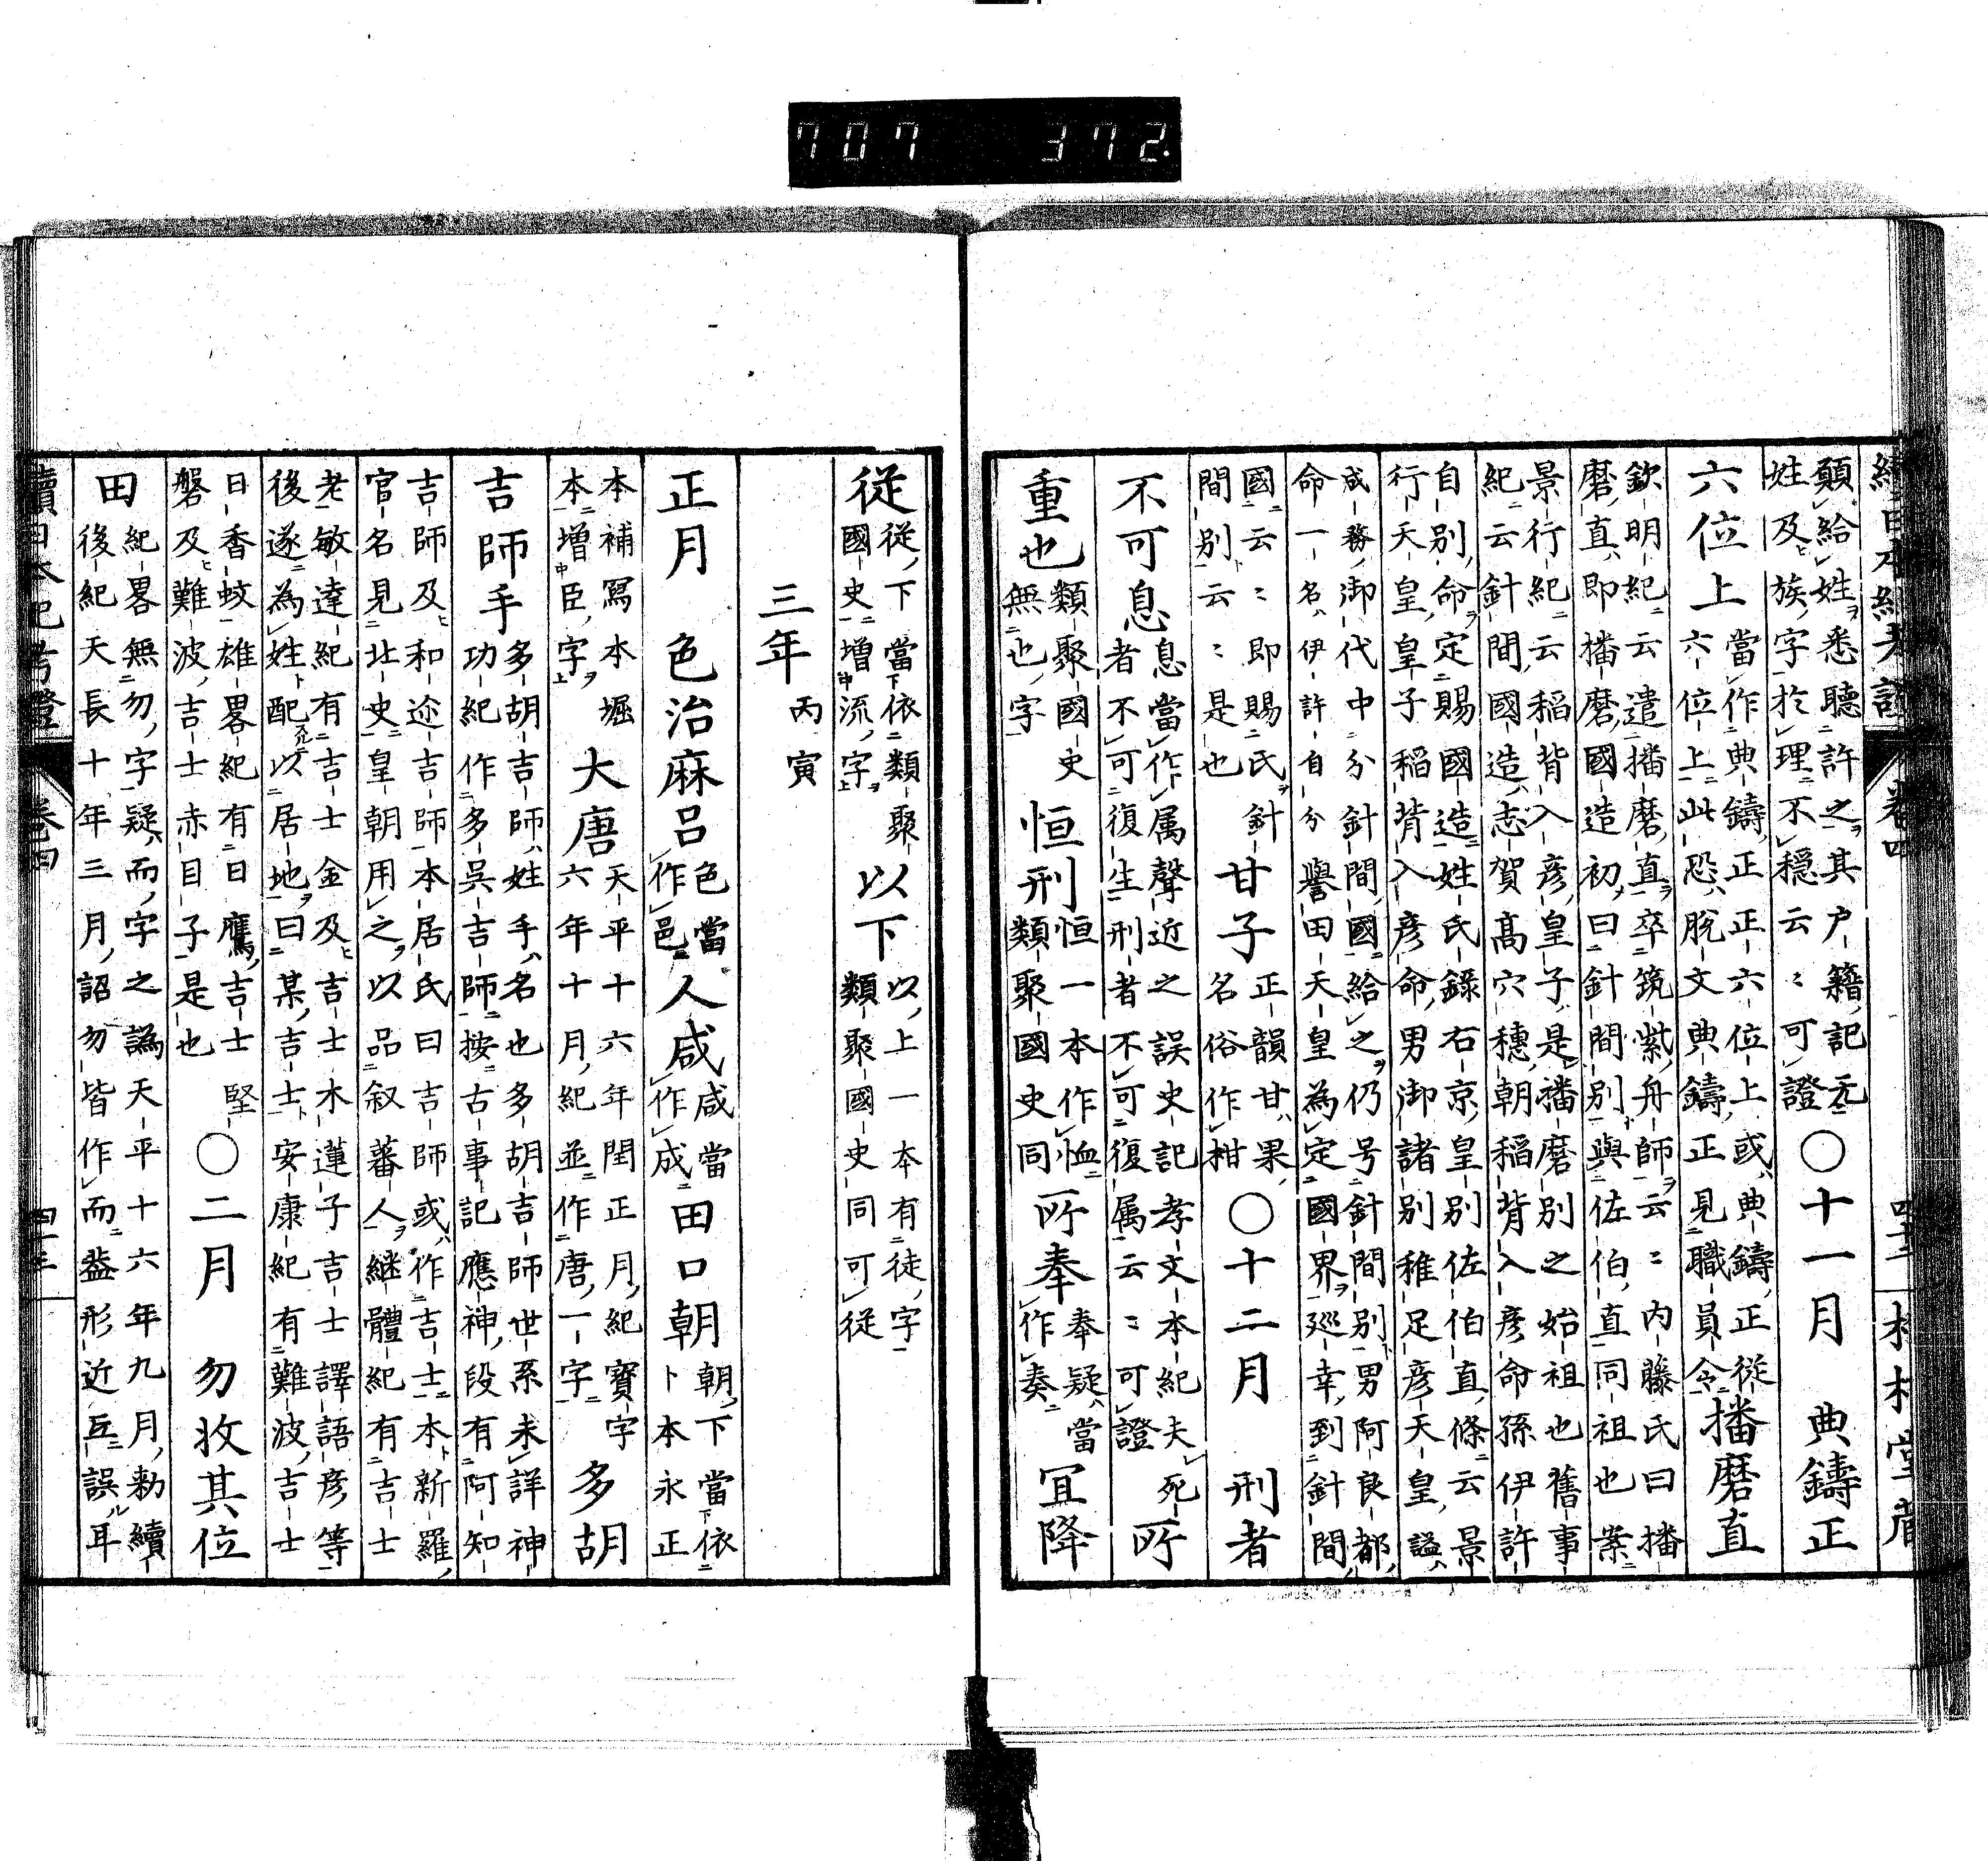 707 372.
續日本紀考證 卷四 四十二
願給姓悉聽許之其戶籍記无
姓及族字於理不穩云〻可證
○十一月 典鑄正
六位上
當作典鑄正正六位上或典鑄正從
六位上此恐脫文典鑄正見職員令
播磨直
欽明紀云遣播磨直卒筑紫舟師云〻內藤氏曰播
磨直卽播磨國造初曰針間別與佐伯直同祖也案
景行紀云稻背入彥皇子是播磨別之始祖也舊事
紀云針間國造志賀高穴穗朝稻背入彥命孫伊許
自別命定賜國造姓氏錄右京皇別佐伯直條云景
行天皇皇子稻背入彥命男御諸別稚足彥天皇謚
成務御代中分針間國給之仍号針間別男阿良都
命一名伊許自分譽田天皇爲定國界巡幸到針間
國云〻卽賜氏針
間別云〻是也
甘子
正韻甘果
名俗作柑
○十二月 刑者
不可息
息當作属聲近之誤史記孝文本紀夫死
者不可復生刑者不可復属云〻可證
所
重也
類聚國史
無也字
恒刑
恒一本作恤
類聚國史同
所奉
奉疑當
作奏
宜降
從
從下當依類聚
國史增流字
以下
以上一本有徒字
類聚國史同可從
三年
丙寅
正月 色治麻呂
色當
作邑
人咸
咸當
作成
田口朝
朝下當依
卜本永正
本補寫本堀
本增臣字
大唐
天平十六年閏正月紀寶字
六年十月紀並作唐一字
多胡
吉師手
多胡吉師姓手名也多胡吉師世系未詳神
功紀作多吳吉師按古事記應神段有阿知
吉師及和迩吉師本居氏曰吉師或作吉士本新羅
官名見北史皇朝用之以品叙蕃人繼體紀有吉士
老敏達紀有吉士金及吉士木蓮子吉士譯語彥等
後遂爲姓配以居地曰某吉士安康紀有難波吉士
日香蚊雄畧紀有日鷹吉士堅
磐及難波吉士赤目子是也
○二月 勿收其位
田
紀畧無勿字疑而字之譌天平十六年九月勅續
後紀天長十年三月詔勿皆作而蓋形近互誤耳
續日本紀考證 卷四